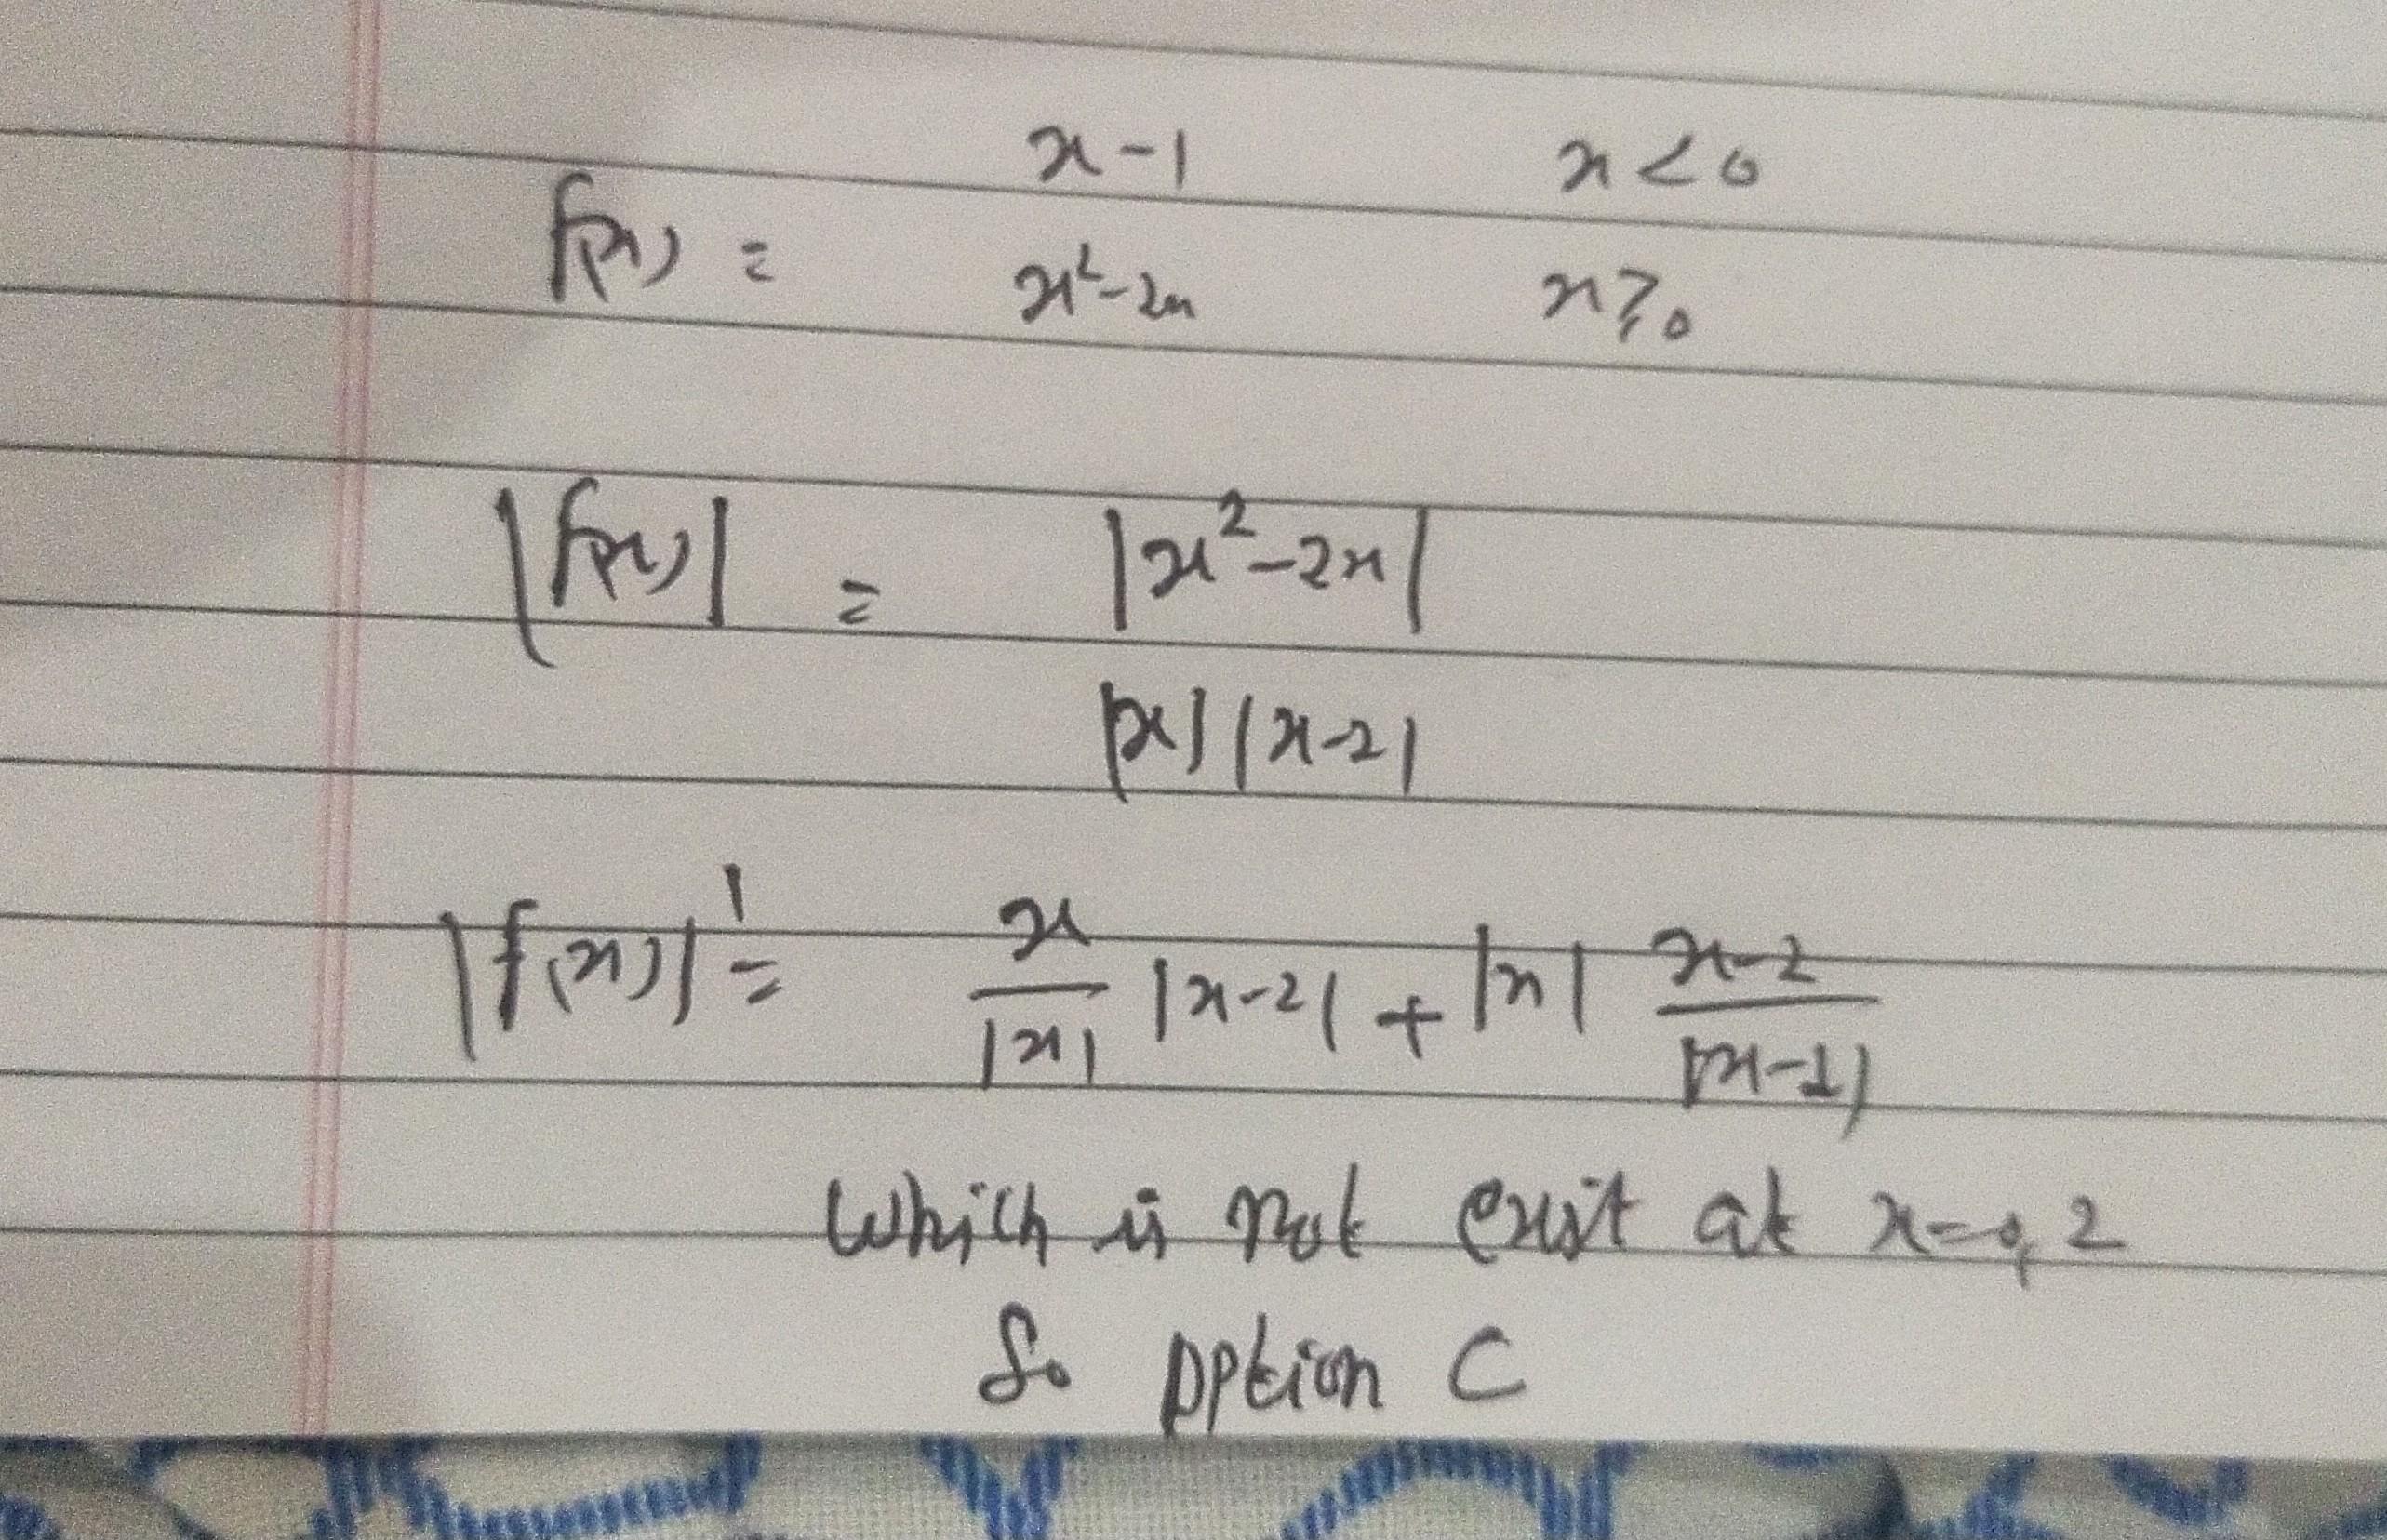 x-1 x<0
f(x) =
x²-2x x≥0
|f(x)| = |x²-2x|
|x| |x-2|
|f(x)|' = x/|x| |x-2| + |x| x-2/|x-2|
Which is not exist at x=0,2
So option C